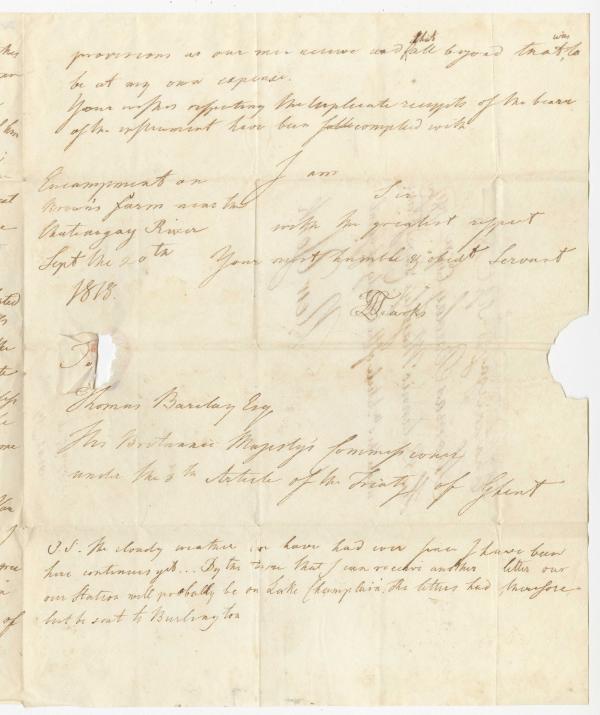 provisions as our men receive and that all beyond that was to
be at my own expense.
Your wishes respecting the duplicate receipts of the bearer
of the instrument have been complied with
I am
Encampment on
Brown's farm near the
Chateaugay River
Sept the 20th
1818.
Sir
with the greatest respect
Your most humble & obedt Servant
Tiarks
To
Thomas Barclay Esq,
His Britannic Majesty's Commissioner
under the 5th Article of the Treaty of Ghent
P.S. The cloudy weather we have had ever since I have been
here continues yet... By the time that I can receive another letter our
our Station will probably be on Lake Champlain. The letters had therefore
but be sent to Burlington